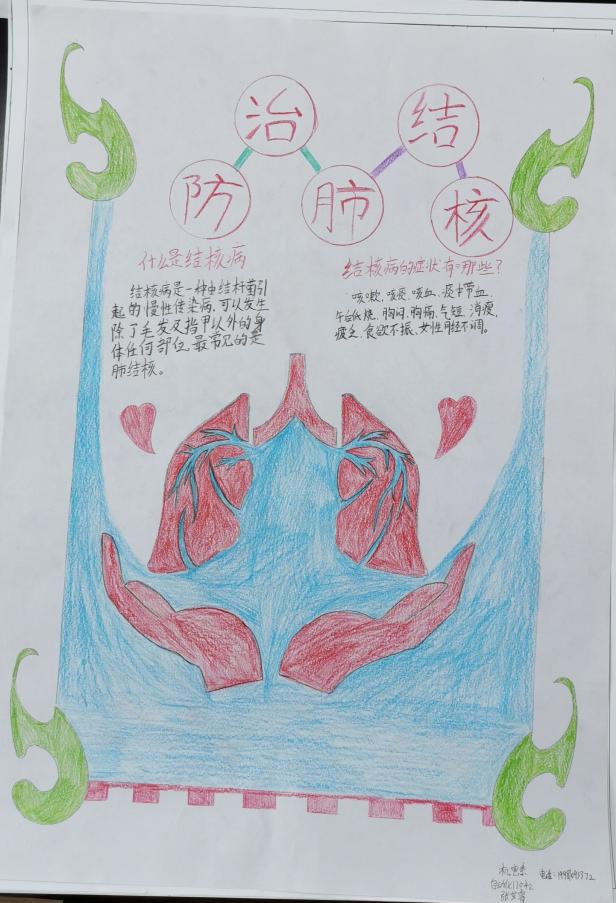 防治肺结核
什么是结核病
结核病是一种由结核杆菌引
起的慢性传染病，可以发生
除了毛发及指甲以外的身
体任何部位，最常见的是
肺结核。
结核病的症状有哪些？
咳嗽、咳痰、咳血、痰中带血、
午后低烧、胸闷、胸痛、气短、消瘦、
疲乏、食欲不振、女性月经不调。
电话：